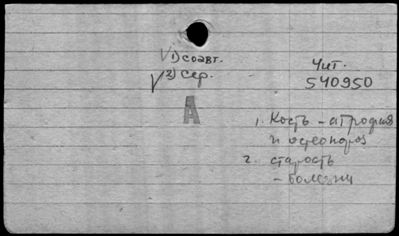 √1) соавт.
√2) сер.
Чит.
540950
А
1. Кость - атрофия
и остеопороз
2. старость
- болезни